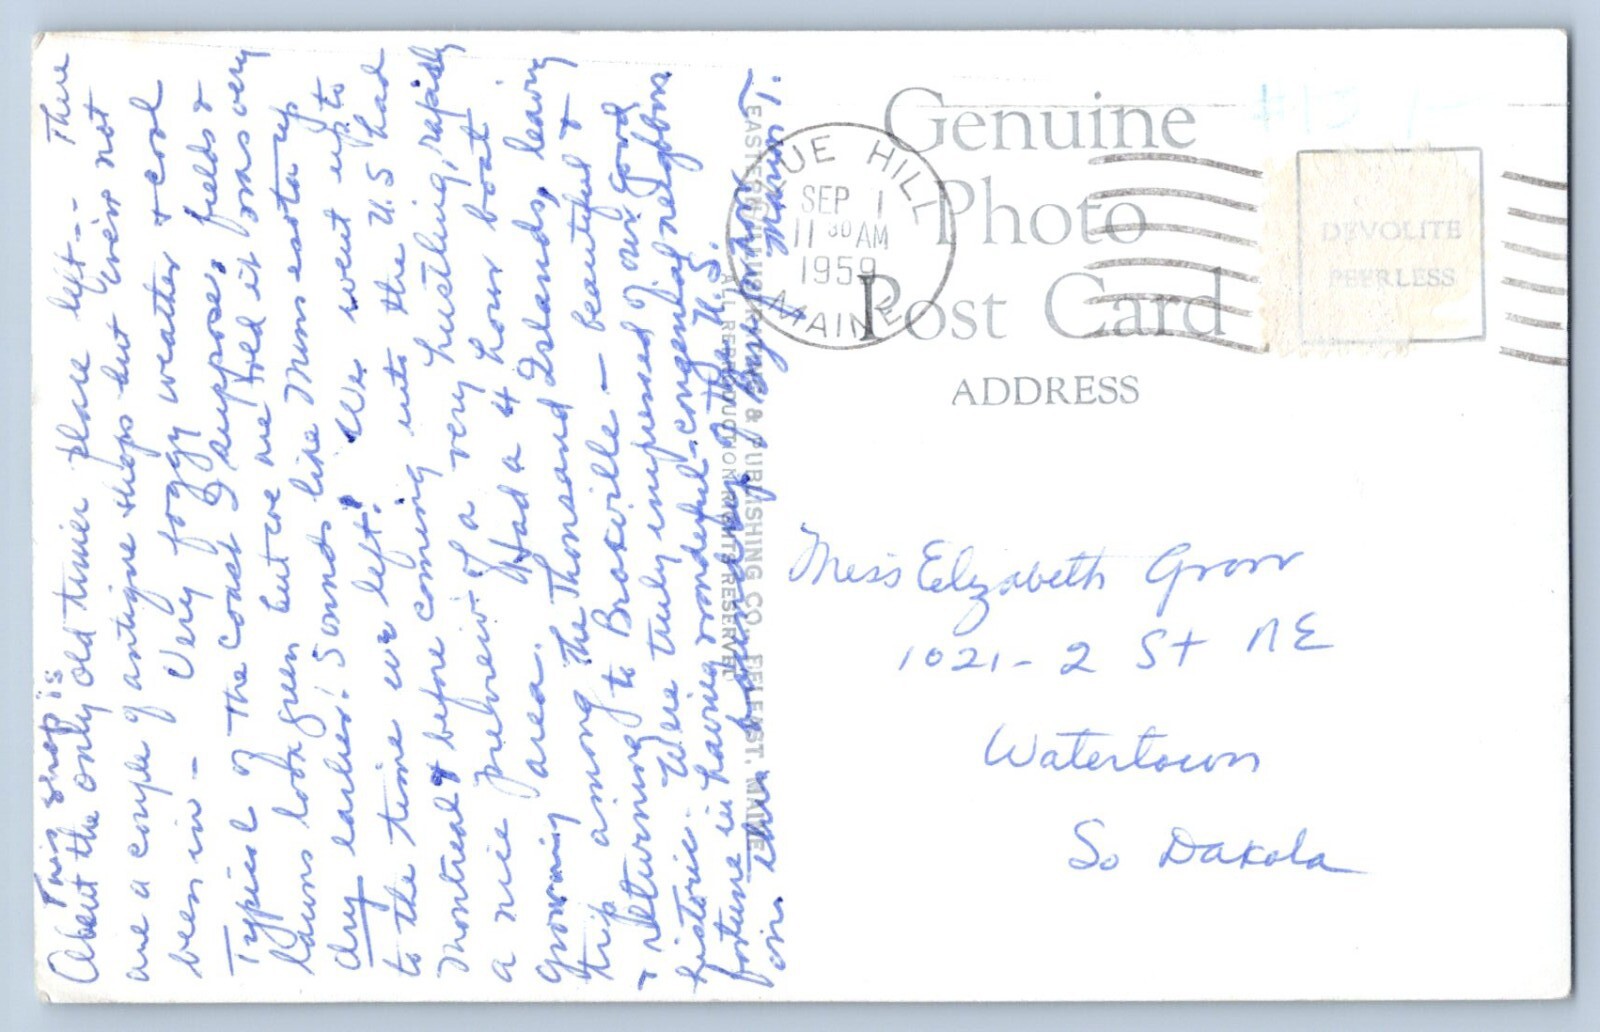 This shop is
About the only old time place left - There
are a couple of antique shops but Erwin not
been in - Very foggy weather & cool
Typical of the coast I suppose, fields &
lawns look green but we are told it was very
dry earlier! Sounds like Minnesota up
to the time we left! We went up to
Montreal & before coming into the U.S had
a nice preview of a very hustling, rapidly
growing area. Had a 4 hour boat
trip among the Thousand Islands, leaving
& returning to Brokville - beautiful &
historic. We're truly impressed of our good
fortune in having wonderful congenial neighbors
on the boundary of the U.S.
Marion T.
EASTERN ILLUSTRATING & PUBLISHING CO. BELFAST, MAINE
ALL REPRODUCTION RIGHTS RESERVED
Genuine
Photo
Post Card
ADDRESS
BLUE HILL
SEP 1
11 30 AM
1959
MAINE
DEVOLITE
PEERLESS
Miss Elizabeth Grow
1021 - 2 St NE
Watertown
So Dakola